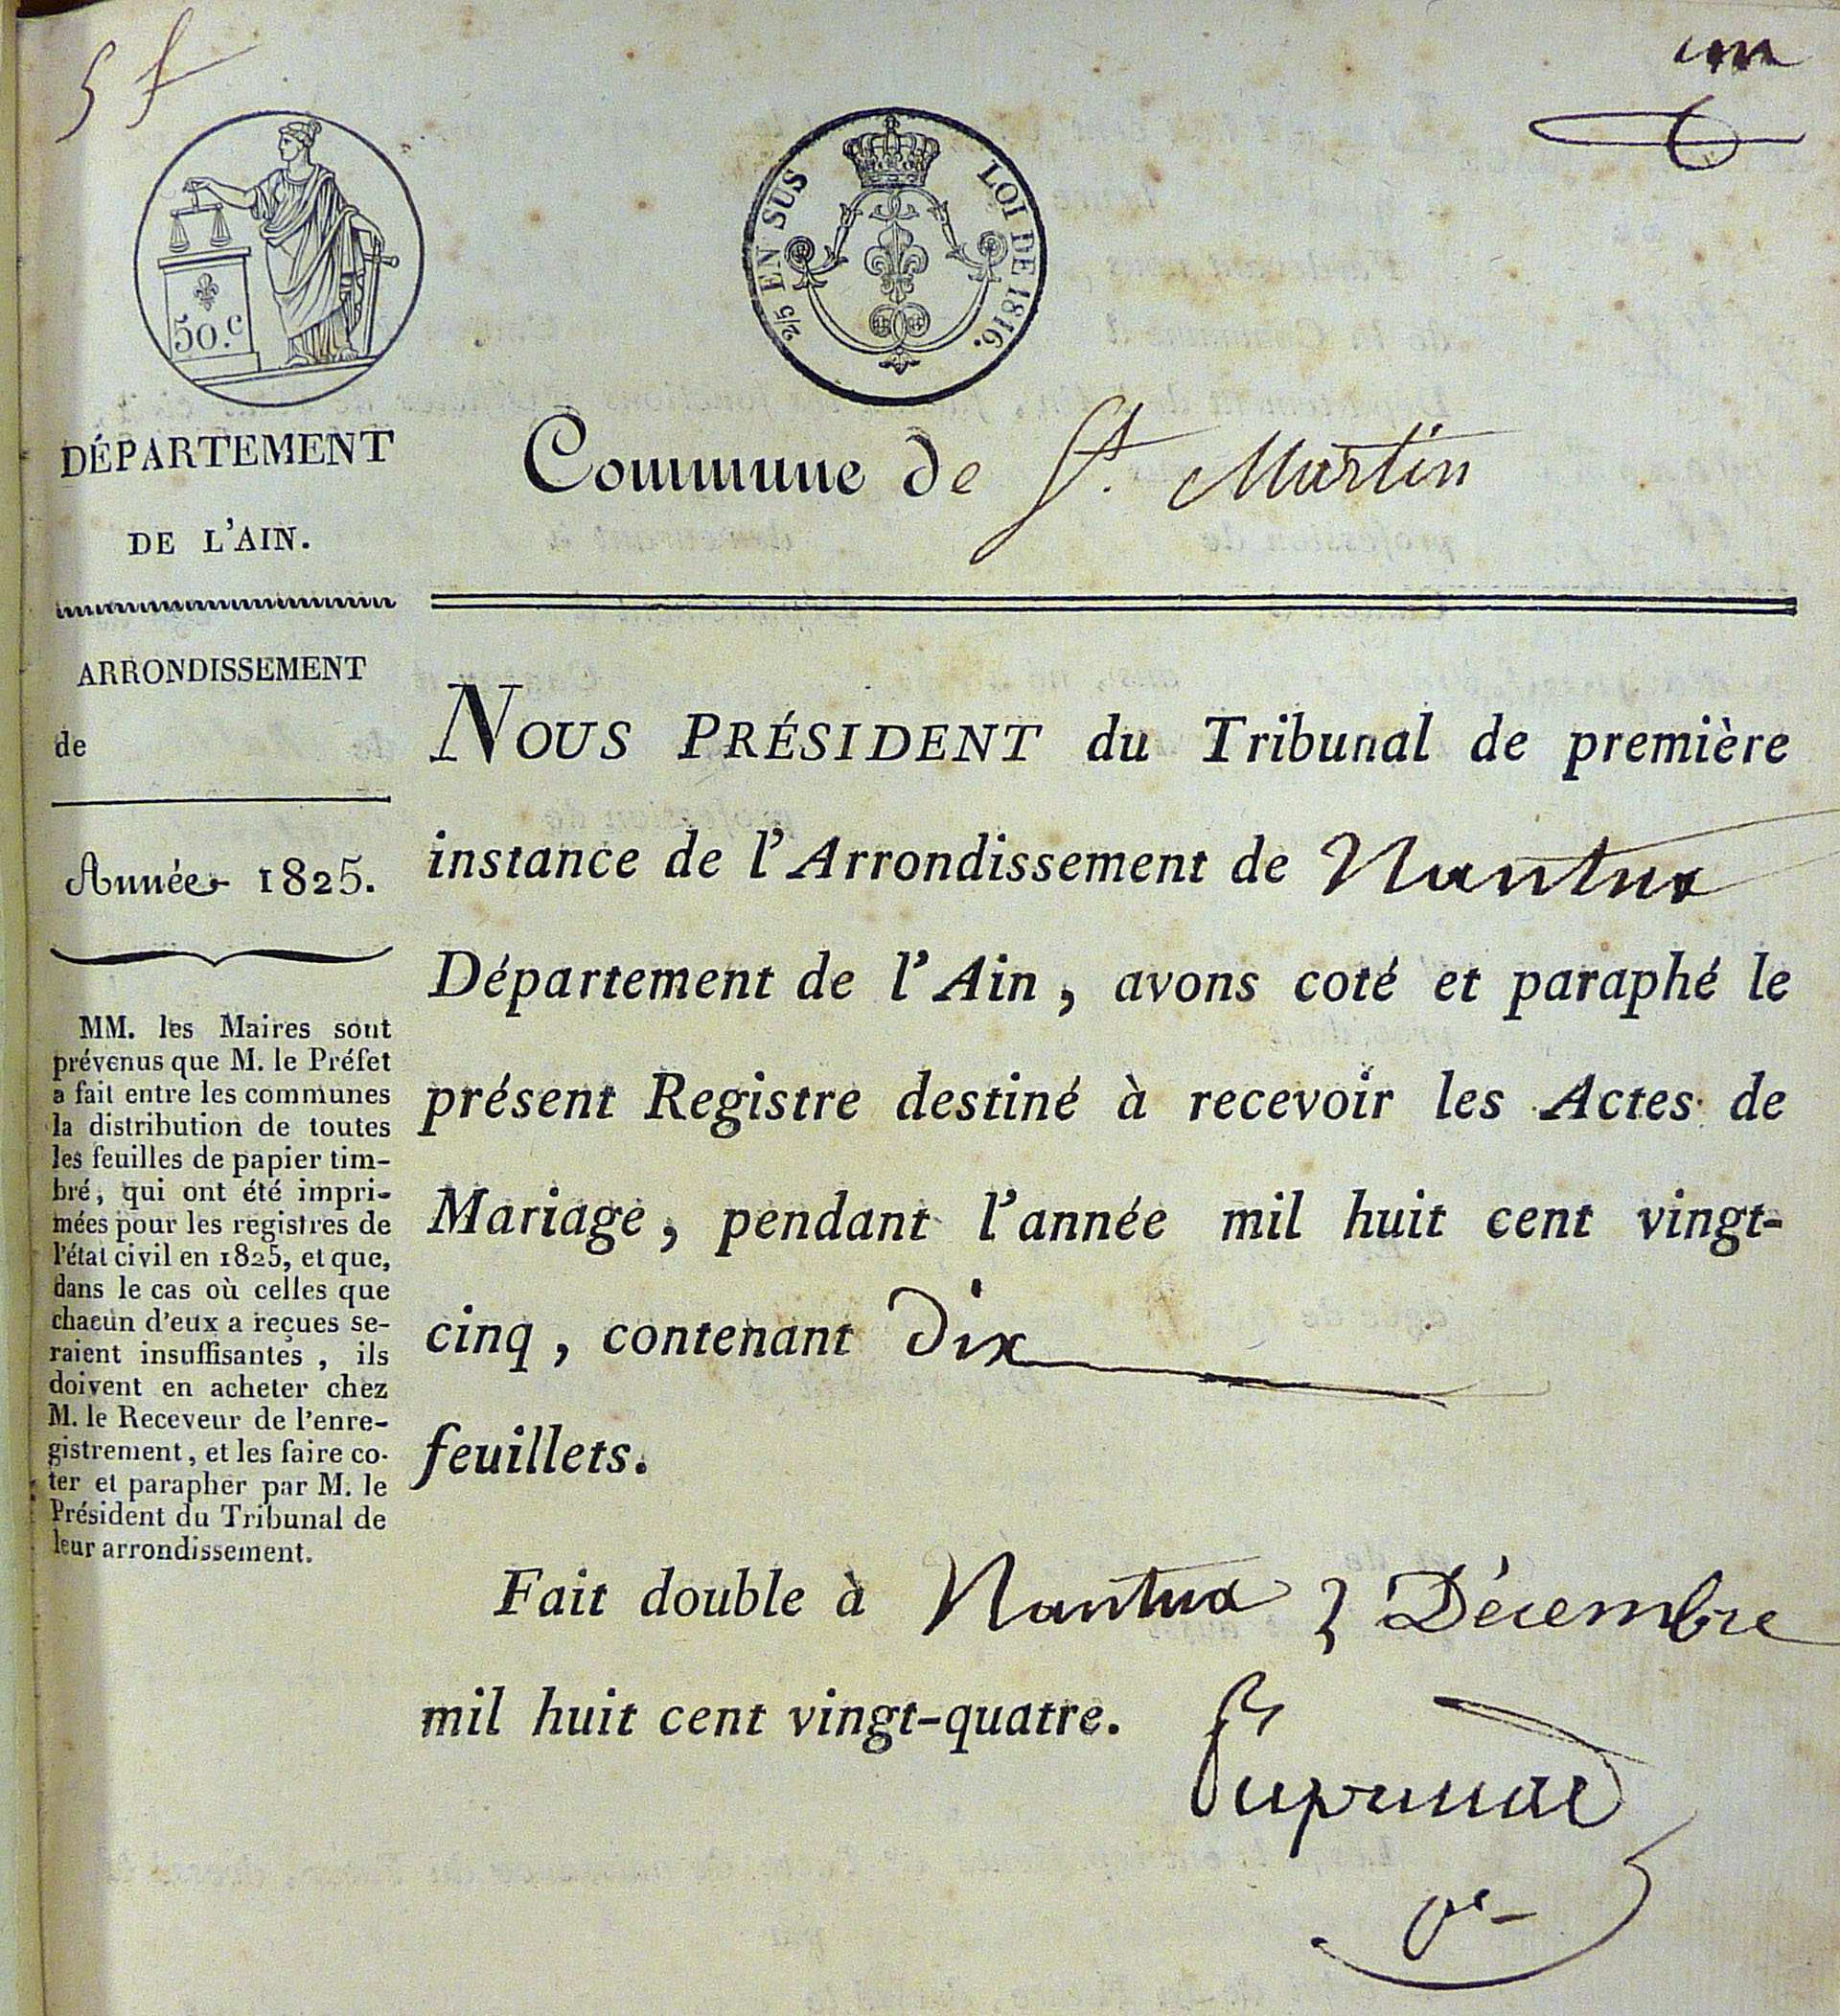 5 f
un
50.c
2/5 EN SUS LOI DE 1816.
DÉPARTEMENT
DE L'AIN.
ARRONDISSEMENT
de
Année 1825.
MM. les Maires sont
prévenus que M. le Préfet
a fait entre les communes
la distribution de toutes
les feuilles de papier tim-
bré, qui ont été impri-
mées pour les registres de
l'état civil en 1825, et que,
dans le cas où celles que
chacun d'eux a reçues se-
raient insuffisantes, ils
doivent en acheter chez
M. le Receveur de l'enre-
gistrement, et les faire co-
ter et parapher par M. le
Président du Tribunal de
leur arrondissement.
Commune de St. Martin
NOUS PRÉSIDENT du Tribunal de première
instance de l'Arrondissement de Nantua
Département de l'Ain, avons coté et paraphé le
présent Registre destiné à recevoir les Actes de
Mariage, pendant l'année mil huit cent vingt-
cinq, contenant dix
feuillets.
Fait double à Nantua 3 Décembre
mil huit cent vingt-quatre.